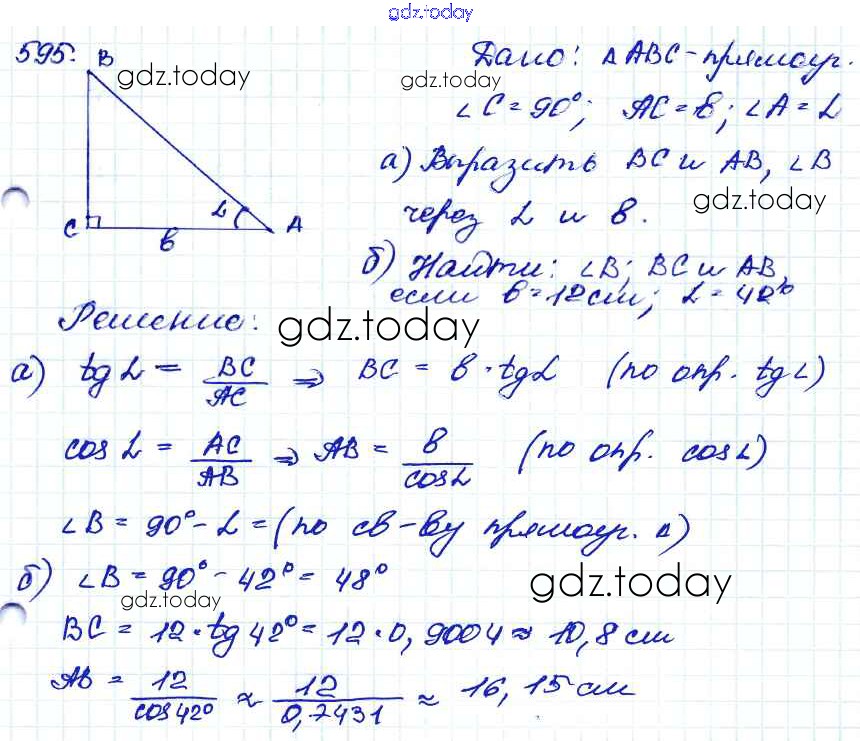 gdz.today
595.
B
C
A
α
в
Дано: △ABC - прямоуг.
∠C = 90°; AC = в; ∠A = α
а) Выразить BC и AB, ∠B
через α и в.
б) Найти: ∠B; BC и AB,
если в = 12 см; α = 42°
gdz.today
gdz.today
gdz.today
Решение:
gdz.today
а) tg α = BC/AC ⇒ BC = в · tg α (по опр. tg ∠)
cos α = AC/AB ⇒ AB = в/cos α (по опр. cos ∠)
∠B = 90° - α = (по св-ву прямоуг. △)
б) ∠B = 90° - 42° = 48°
gdz.today
gdz.today
BC = 12 · tg 42° = 12 · 0,9004 ≈ 10,8 см
AB = 12/cos 42° ≈ 12/0,7431 ≈ 16,15 см